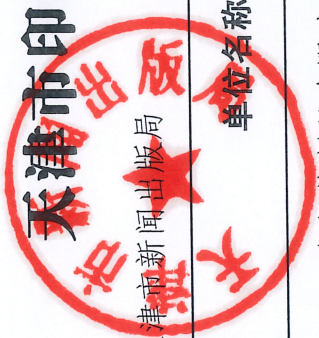 天津市印
津市新闻出版局
单位名称
天津市新闻出版局